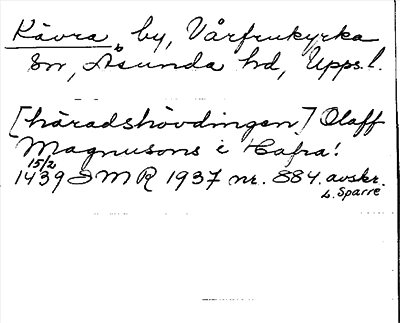 Kävra, by, Vårfrukyrka
sn, Åsunda hd, Upps. l.
[häradshövdingen] Olaff
Magnusons i Cafra!
15/2
1439 SMR 1937 nr. 884. avskr.
L. Sparre